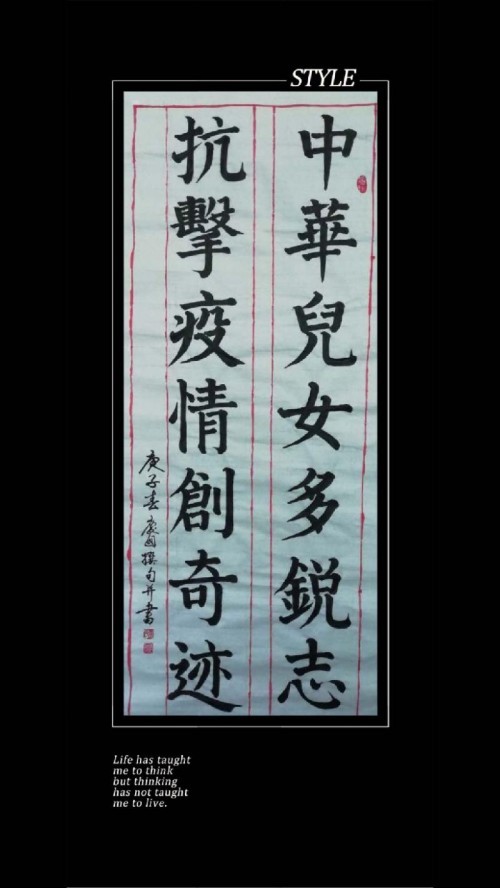 STYLE
中華兒女多鋭志
抗擊疫情創奇迹
庚子春 撰句并書
Life has taught
me to think
but thinking
has not taught
me to live.